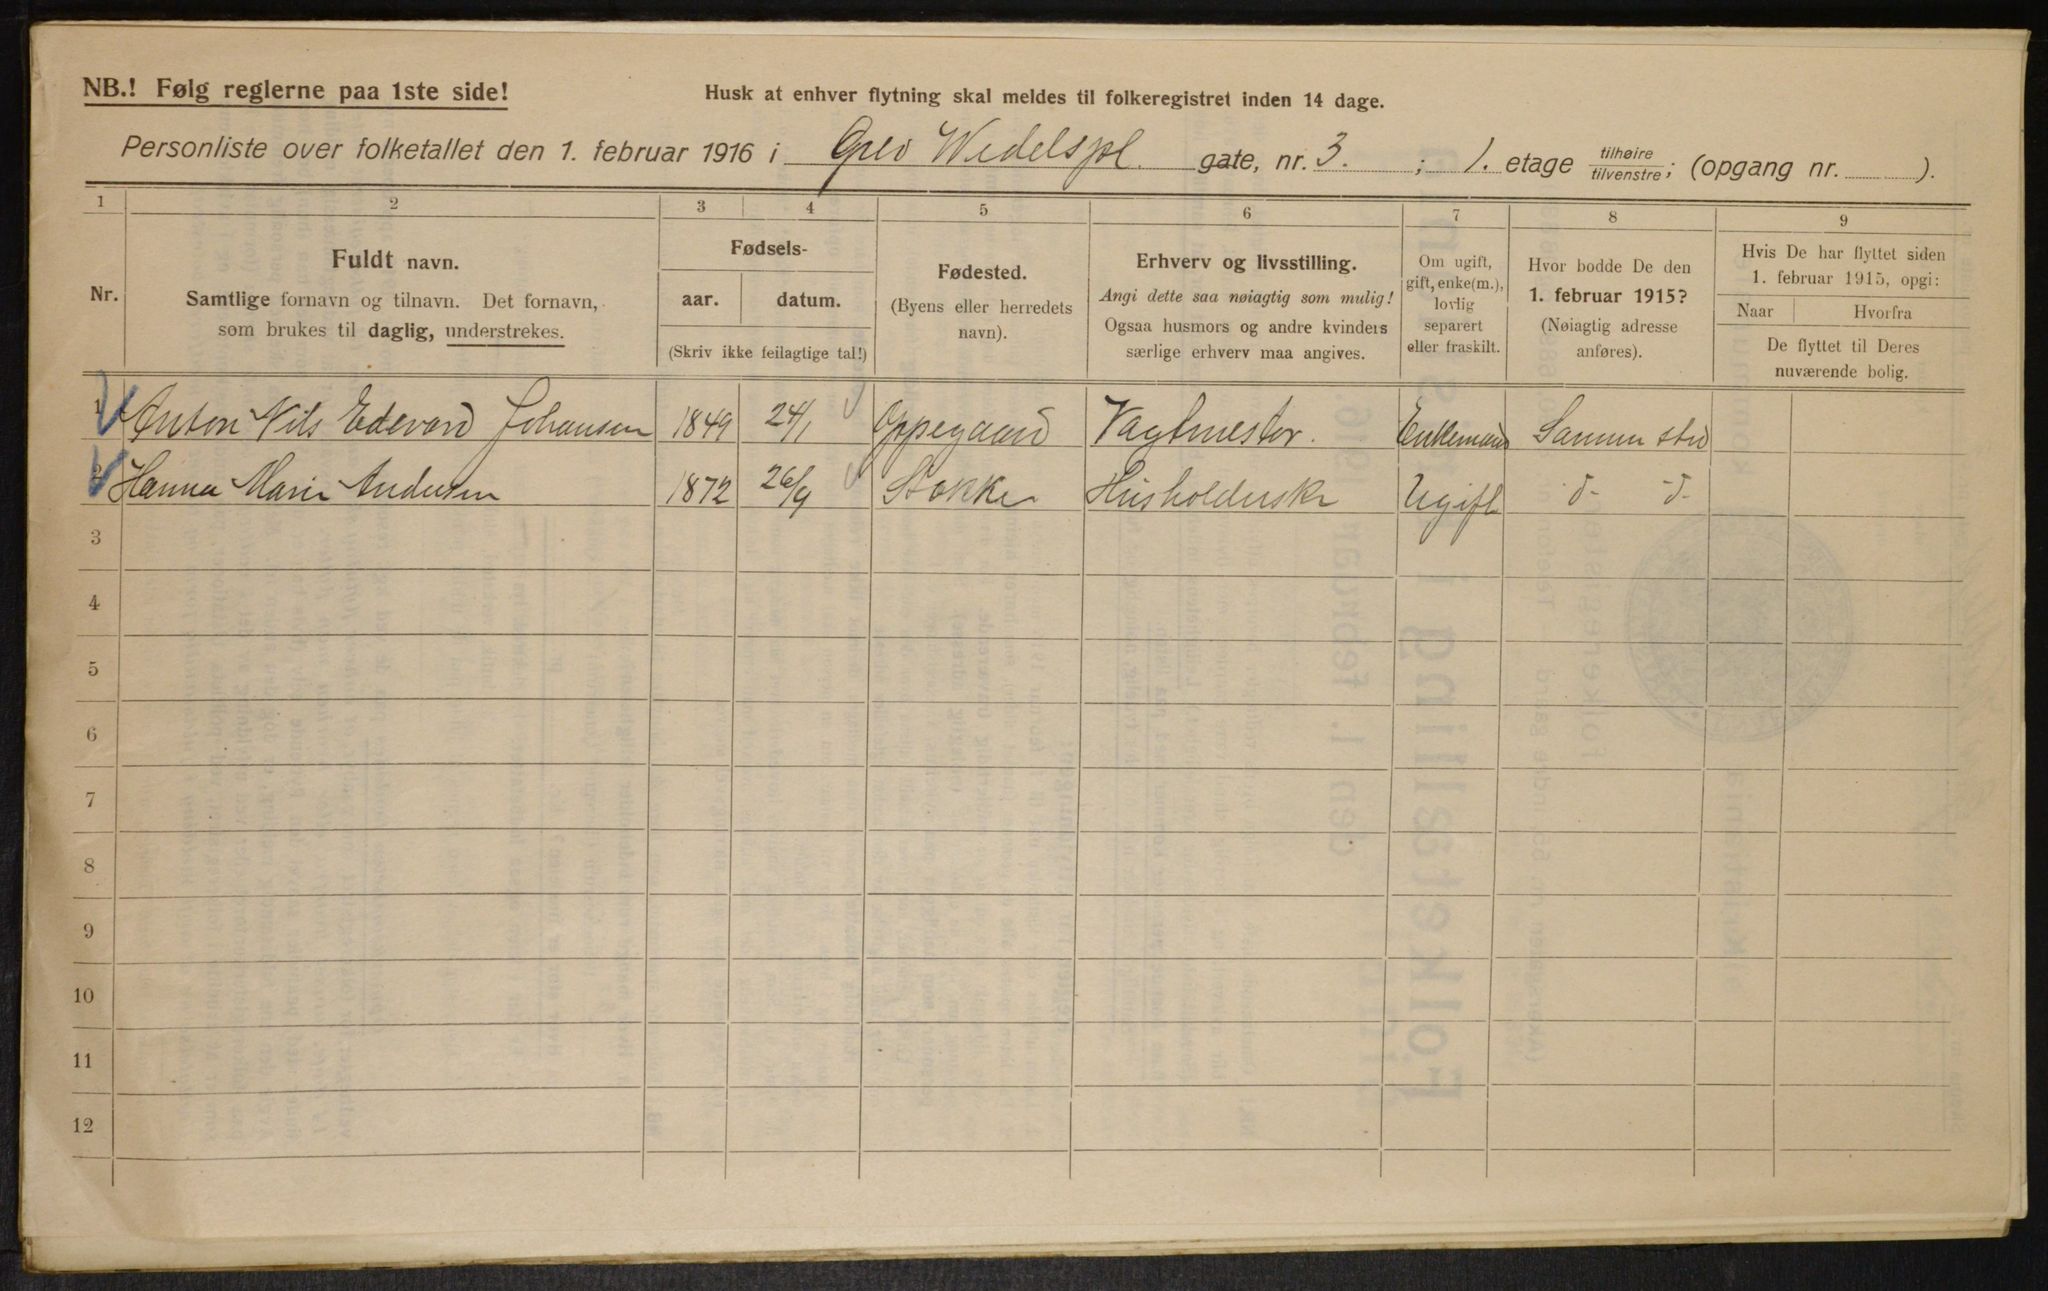 NB.! Følg reglerne paa 1ste side!
Husk at enhver flytning skal meldes til folkeregistret inden 14 dage.
Personliste over folketallet den 1. februar 1916 i Grev Wedelspl. gate, nr. 3. ; 1. etage tilhøire/tilvenstre; (opgang nr. ).
1 2 3 4 5 6 7 8 9
Nr.
Fuldt navn.
Samtlige fornavn og tilnavn. Det fornavn,
som brukes til daglig, understrekes.
Fødsels-
aar. datum.
(Skriv ikke feilagtige tal!)
Fødested.
(Byens eller herredets
navn).
Erhverv og livsstilling.
Angi dette saa nøiagtig som mulig!
Ogsaa husmors og andre kvinders
særlige erhverv maa angives.
Om ugift,
gift, enke(m.),
lovlig
separert
eller fraskilt.
Hvor bodde De den
1. februar 1915?
(Nøiagtig adresse
anføres).
Hvis De har flyttet siden
1. februar 1915, opgi:
Naar Hvorfra
De flyttet til Deres
nuværende bolig.
1 Anton Nils Edevard Johansen 1849 24/1 Oppegaard Vagtmester. Enkemand Samme sted
2 Hanna Marie Andersen 1872 26/9 Stokke Husholderske Ugift d- d-
3
4
5
6
7
8
9
10
11
12